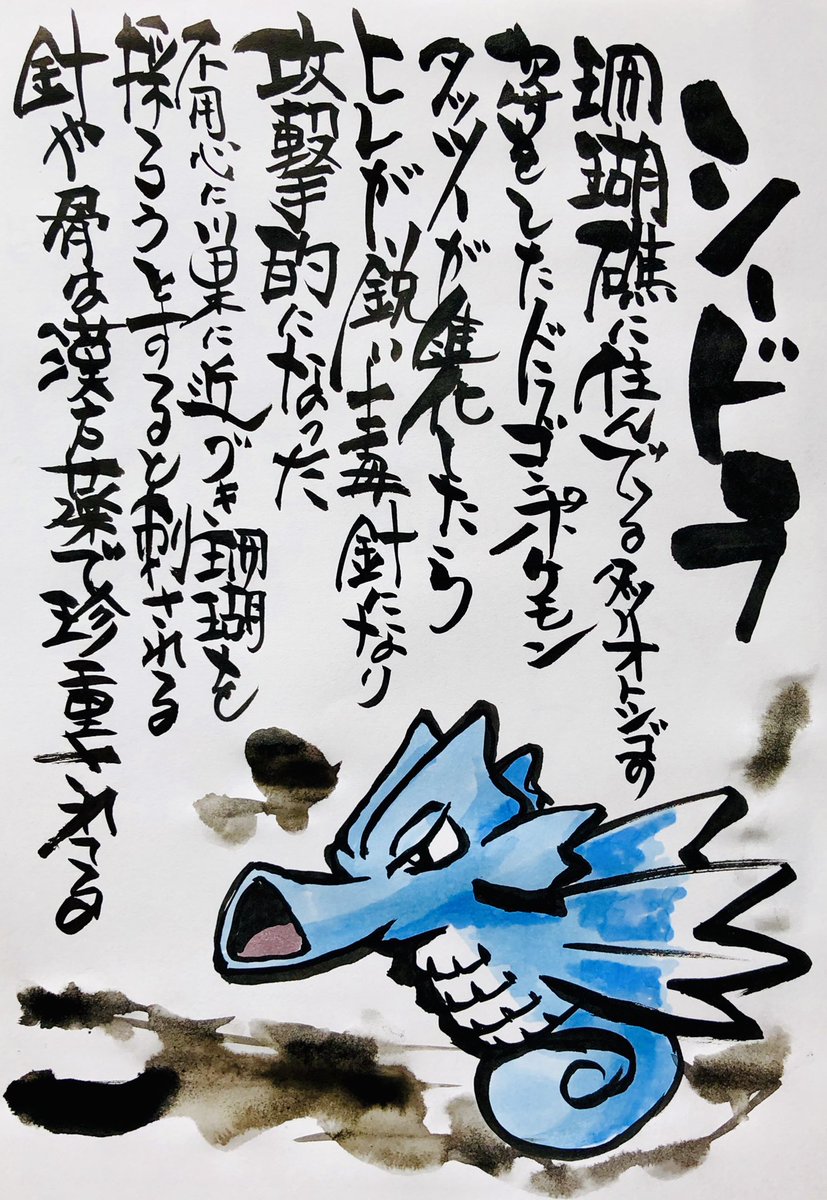 シードラ
珊瑚礁に住んでいるタツノオトシゴの
姿をしたドラゴンポケモン
タッツーが進化したら
ヒレが鋭い毒針になり
攻撃的になった
不用心に巣に近づき珊瑚を
採ろうとすると刺される
針や骨は漢方薬で珍重されてる